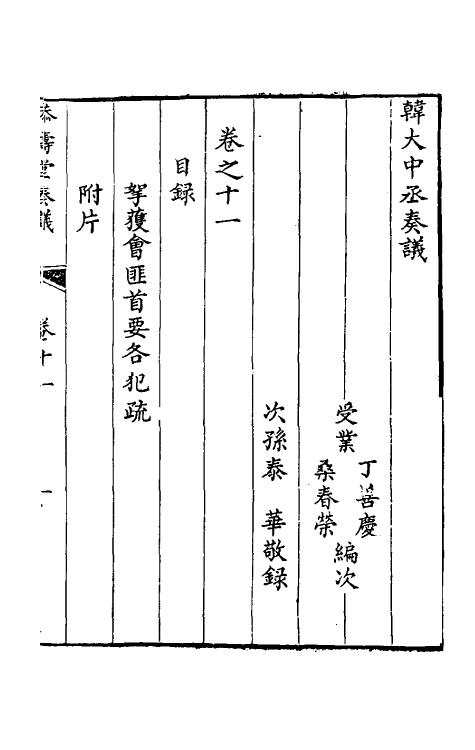 韓大中丞奏議
受業
丁善慶
桑春榮
編次
次孫泰　華敬録
卷之十一
目録
拏獲會匪首要各犯疏
附片
恭壽堂奏議　卷十一　一